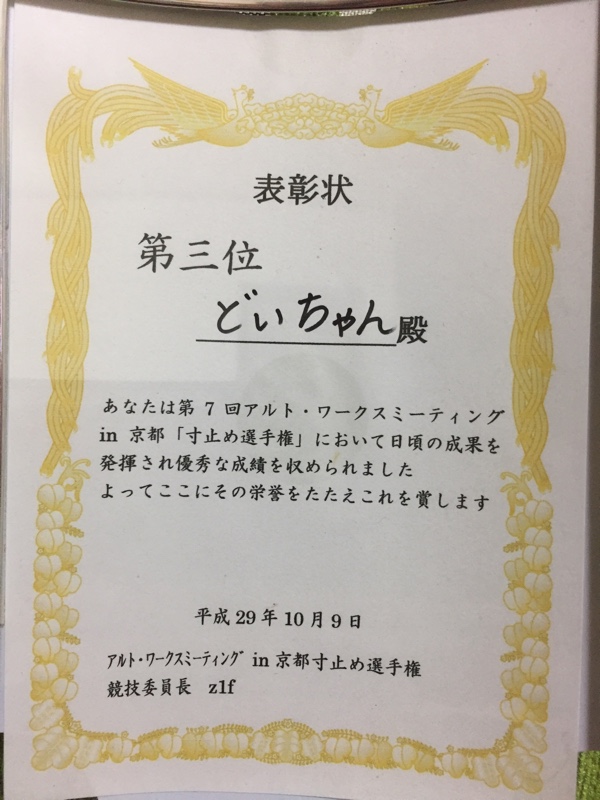 表彰状
第三位
どいちゃん殿
あなたは第7回アルト・ワークスミーティング
in 京都「寸止め選手権」において日頃の成果を
発揮され優秀な成績を収められました
よってここにその栄誉をたたえこれを賞します
平成29年10月9日
ｱﾙﾄ・ﾜｰｸｽﾐｰﾃｨﾝｸﾞ in 京都寸止め選手権
競技委員長 z1f